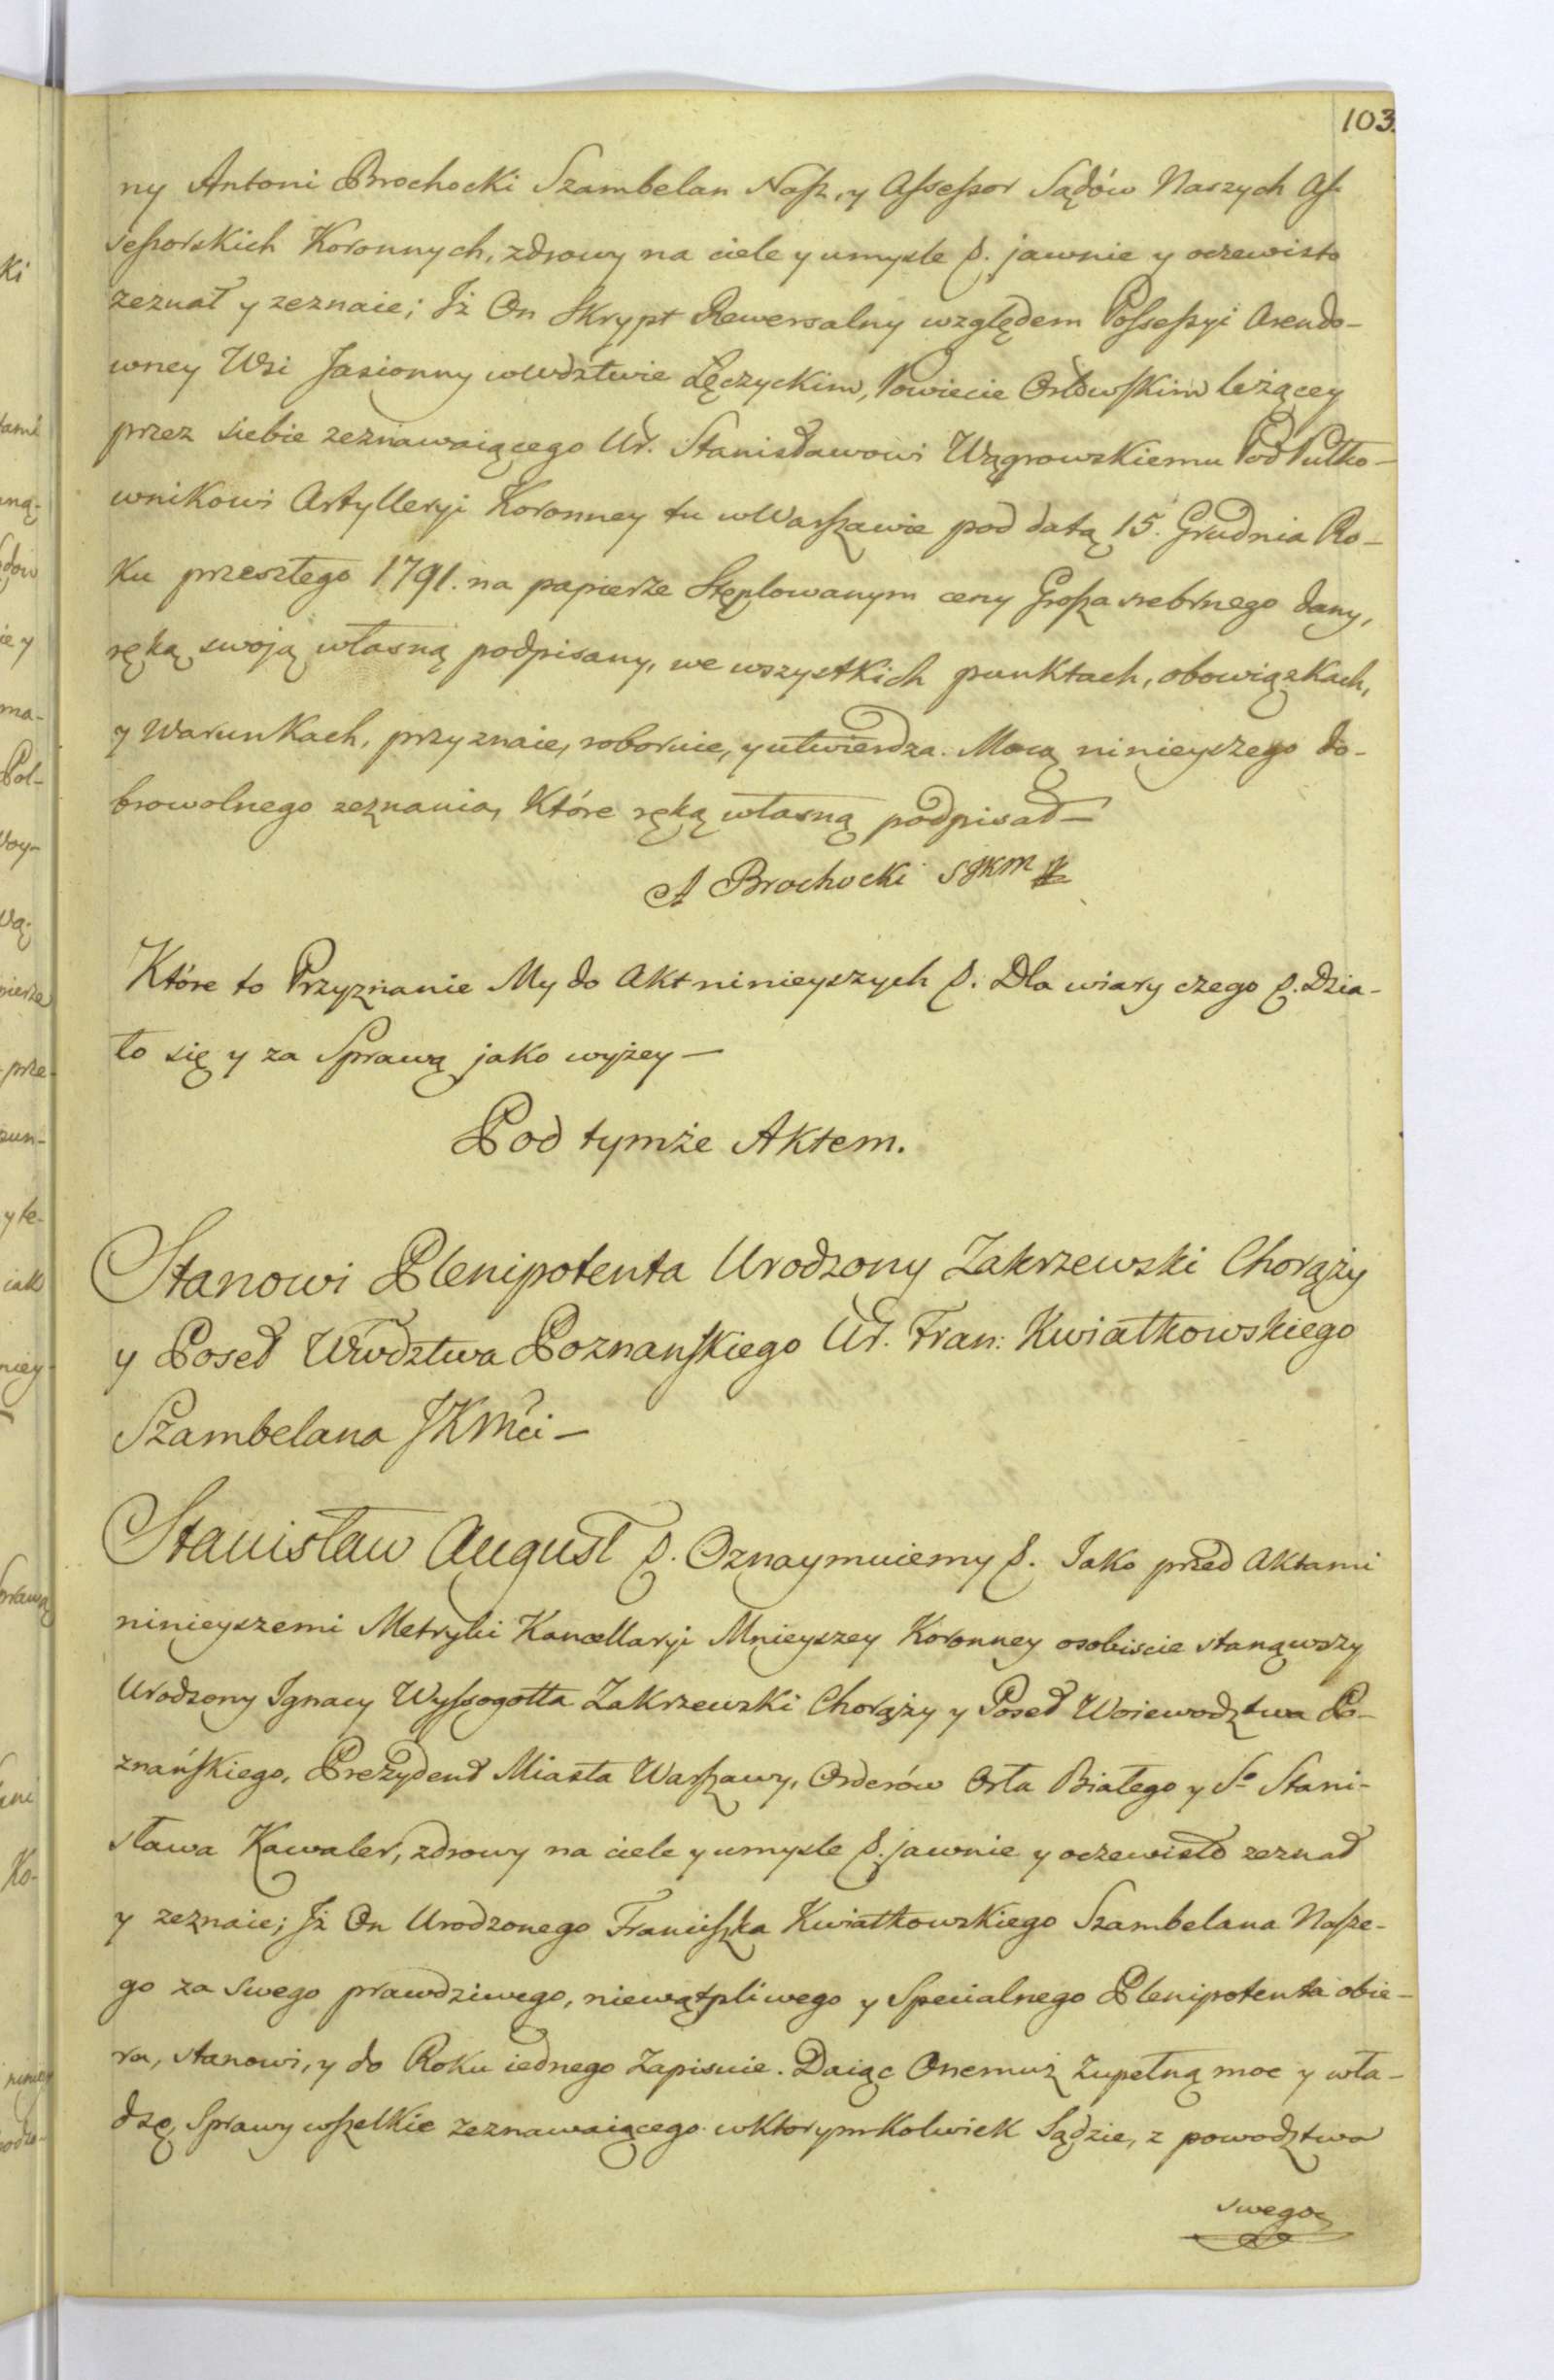 103.
ny Antoni Brochocki Szambelan Nasz, y Assessor Sądów Naszych As-
sessorskich Koronnych, zdrowy na ciele y umysle p. jawnie y oczewisto
zeznał y zeznaie; Iż On Skrypt Rewersalny względem Possessyi Arendo-
wney Wsi Jasionny w Wdztwie Łęczyckim, Powiecie Orłowskim leżącey
przez siebie zeznawaiącego Ur. Stanisławowi Wągrowskiemu Pod Pułko-
wnikowi Artylleryi Koronney tu w Warszawie pod datą 15. Grudnia Ro-
ku przeszłego 1791. na papierze Stęplowanym ceny Grosza srebrnego dany,
ręką swoją własną podpisany, we wszystkich punktach, obowiązkach,
y Warunkach, przyznaie, roboruie, y utwierdza. Mocą ninieyszego do-
browolnego zeznania, Które ręką własną podpisał—
A Brochocki SJKM
Które to Przyznanie My do Akt ninieyszych p. Dla wiary czego p. Dzia-
ło się y za Sprawą jako wyżey—
Pod tymże Aktem.
Stanowi Plenipotenta Urodzony Zakrzewski Chorąży
y Poseł Wwodztwa Poznanskiego Ur. Fran: Kwiatkowskiego
Szambelana JKMci—
Stanisław August p. Oznaymuiemy p. Iako przed Aktami
ninieyszemi Metryki Kancellaryi Mnieyszey Koronney osobiscie stanąwszy
Urodzony Ignacy Wyssogotta Zakrzewski Chorąży y Poseł Woiewodztwa Po-
znańskiego, Prezydent Miasta Warszawy, Orderów Orła Białego y So Stani-
sława Kawaler, zdrowy na ciele y umysle p. jawnie y oczewisto zeznał
y zeznaie; Iż On Urodzonego Franciszka Kwiatkowskiego Szambelana Nasze-
go za swego prawdziwego, niewątpliwego y Specialnego Plenipotenta obie-
ra, stanowi, y do Roku iednego Zapisuie. Daiąc Onemuż Zupełną moc y wła-
dzę, Sprawy wszelkie zeznawaiącego w ktorymkolwiek Sądzie, z powodztwa
swego